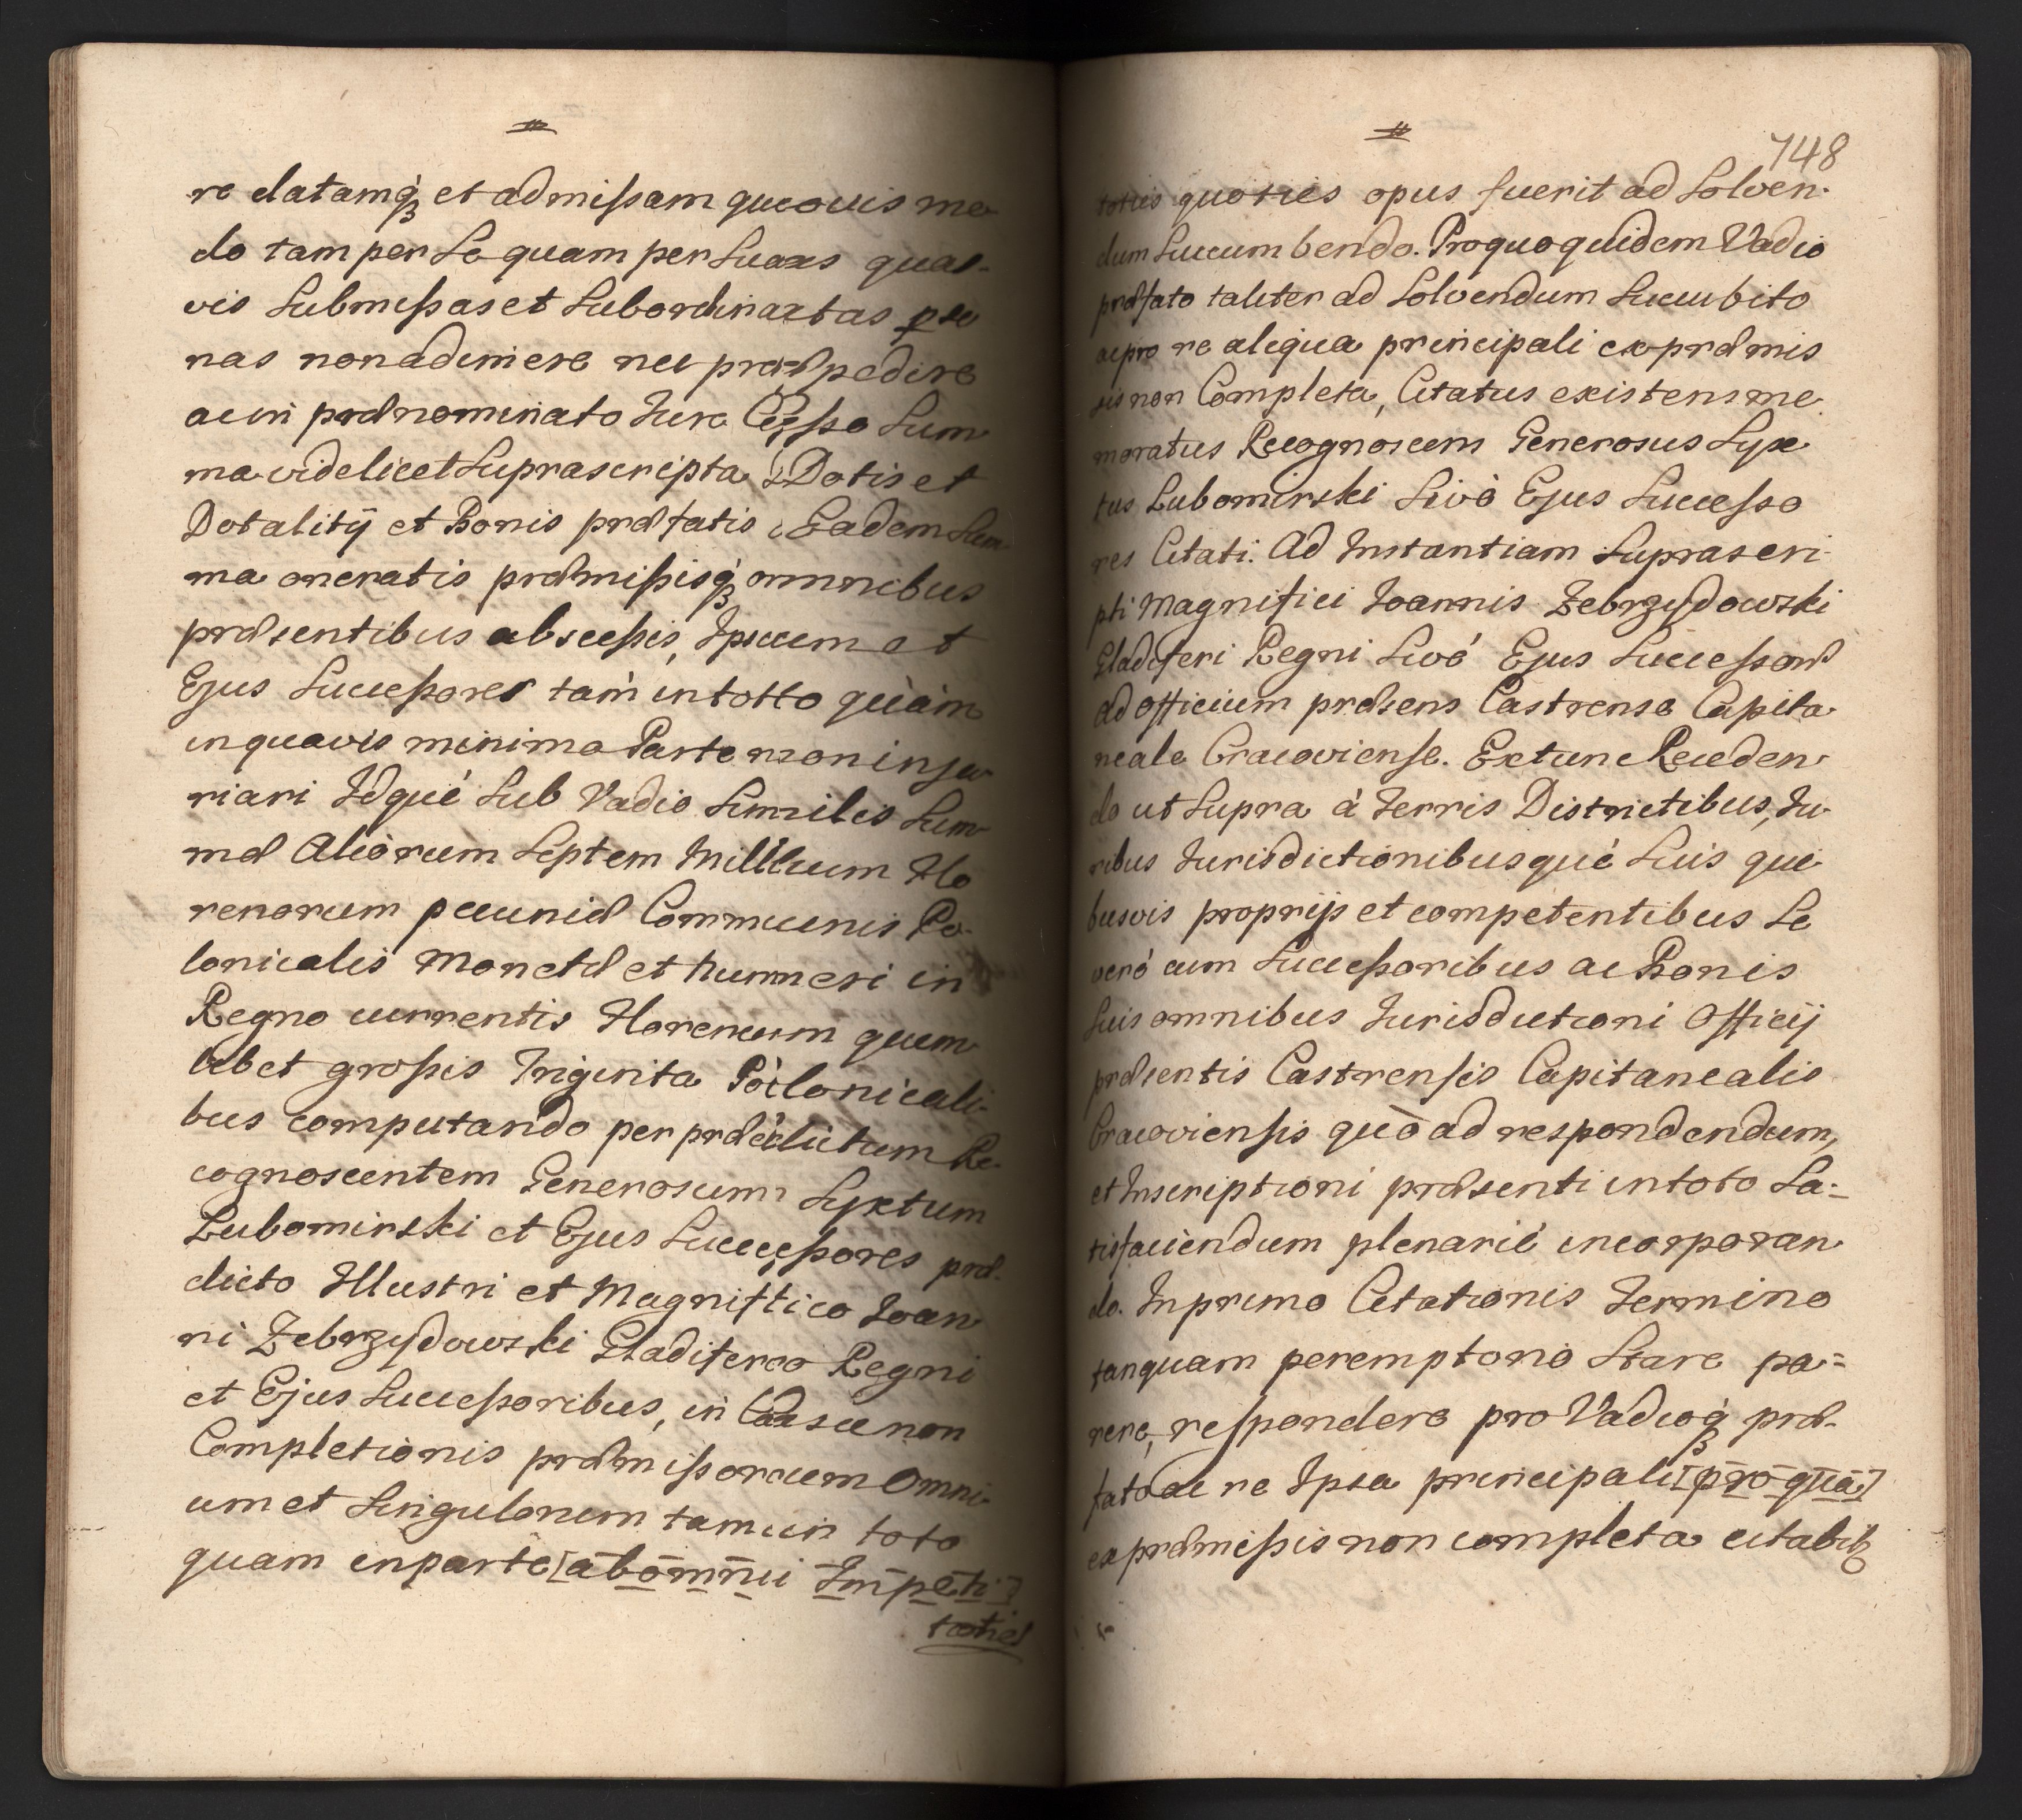 re datamq₃ et admissam quovis mo
do tam per Se quam per Suas quas-
vis Submissas et Subordinatas perso
nas non adimere nec præpedire
ac in prænominato Jure Cesso Sum
ma videlicet Suprascripta Dotis et
Dotalitij et Bonis præfatis Eadem Sum
ma oneratis præmissisq₃ omnibus
præsentibus abscessis, Ipsum et
Ejus Successores tam in totto quàm
in quavis minima Parte non inju
riari Idque Sub Vadio Similis Sum
mæ Aliorum Septem Millium Flo
renorum pecuniæ Communis Po-
lonicalis Monetæ et Numeri in
Regno currentis Florenum quem
libet grossis Triginta Polonicali-
bus computando per præ Re-
cognoscentem Generosum Syxtum
Lubomirski et Ejus Successores præ-
dicto Illustri et Magnifico Joan
ni Zebrzydowski Gladifero Regni
et Ejus Successoribus, in Casu non
Completionis præmissorum Omni
um et Singulorum tam in toto
quam in parte [ab omni Impeti]
toties
748
toties quoties opus fuerit ad Solven-
dum Succumbendo. Pro quo quidem Vadio
præfato taliter ad Solvendum Succubito
ac pro re aliqua principali ex præmis
sis non Completa, Citatus existens me
moratus Recognoscens Generosus Syx
tus Lubomirski Sivè Ejus Successo
res Citati. Ad Instantiam Suprascri
pti Magnifici Joannis Zebrzydowski
Gladiferi Regni Sivè Ejus Successorū
ad Officium præsens Castrense Capita
neale Cracoviense. Extunc Receden
do ut Supra à Terris Districtibus, Ju
ribus Jurisdictionibusquè Suis qui
busvis proprijs et competentibus Se
verò cum Successoribus ac Bonis
Suis omnibus Jurisdictioni Officij
præsentis Castrensis Capitanealis
Cracoviensis quò ad respondendum,
et Inscriptioni præsenti in toto Sa:-
tisfaciendum plenariè incorporan
do. In primo Citationis Termino
tanquam peremptorio Stare pa=
rere, respondere pro Vadioq₃ præ-
fato ac re Ipsa principali [pro qua]
ex præmissis non completa citabit